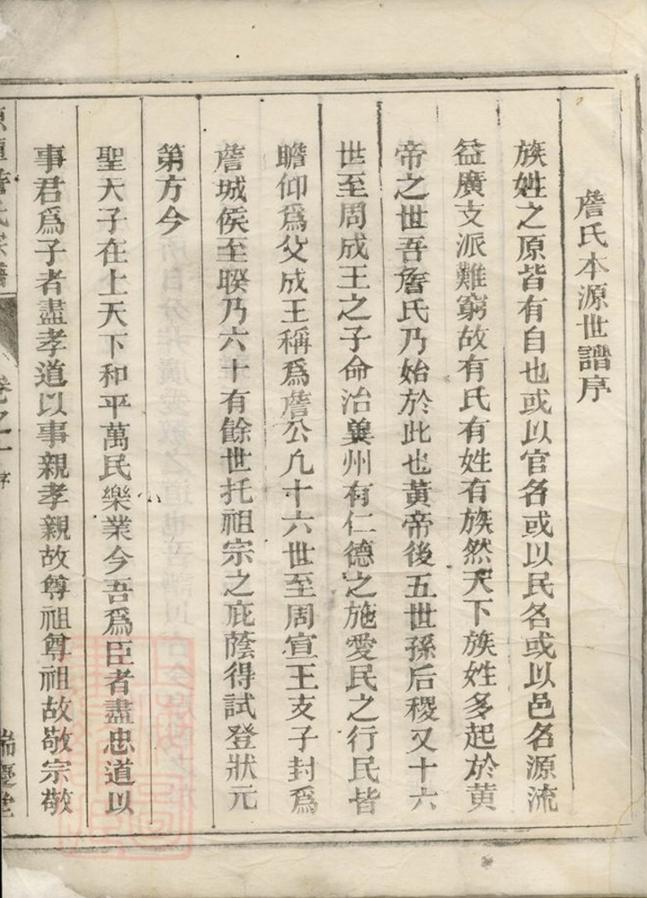 詹氏本源世譜序
族姓之原皆有自也或以官名或以民名或以邑名源流
益廣支派難窮故有氏有姓有族然天下族姓多起於黃
帝之世吾詹氏乃始於此也黃帝後五世孫后稷又十六
世至周成王之子命治冀州有仁德之施愛民之行民皆
瞻仰爲父成王稱爲詹公九十六世至周宣王支子封爲
詹城侯至䁋乃六十有餘世托祖宗之庇蔭得試登狀元
第方今
聖天子在上天下和平萬民樂業今吾爲臣者盡忠道以
事君爲子者盡孝道以事親孝親故尊祖尊祖故敬宗敬
詹氏宗譜
卷之一
序
瑞慶堂